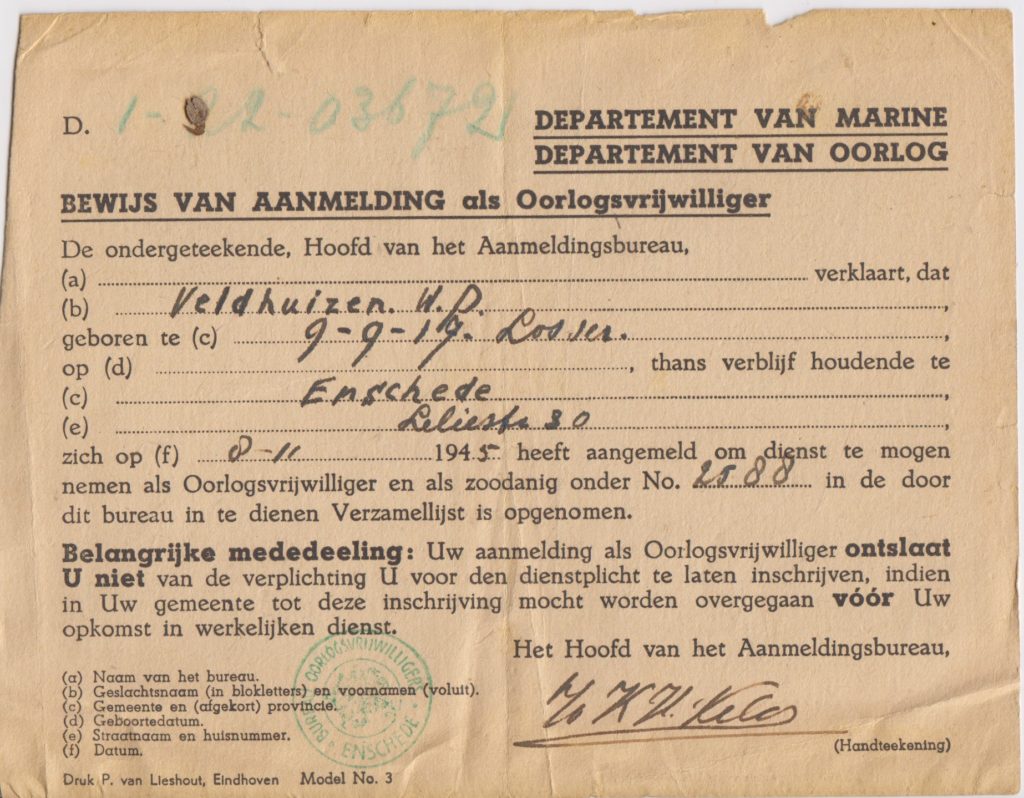 D. 1-22-03672
DEPARTEMENT VAN MARINE
DEPARTEMENT VAN OORLOG
BEWIJS VAN AANMELDING als Oorlogsvrijwilliger
De ondergeteekende, Hoofd van het Aanmeldingsbureau,
(a) verklaart, dat
(b) Veldhuizen. W.D.,
geboren te (c) 9-9-19. Losser.,
op (d) , thans verblijf houdende te
(c) Enschede,
(e) Leliestr 30,
zich op (f) 8-11 1945 heeft aangemeld om dienst te mogen
nemen als Oorlogsvrijwilliger en als zoodanig onder No. 2588 in de door
dit bureau in te dienen Verzamellijst is opgenomen.
Belangrijke mededeeling: Uw aanmelding als Oorlogsvrijwilliger ontslaat
U niet van de verplichting U voor den dienstplicht te laten inschrijven, indien
in Uw gemeente tot deze inschrijving mocht worden overgegaan vóór Uw
opkomst in werkelijken dienst.
Het Hoofd van het Aanmeldingsbureau,
(a) Naam van het bureau.
(b) Geslachtsnaam (in blokletters) en voornamen (voluit).
(c) Gemeente en (afgekort) provincie.
(d) Geboortedatum.
(e) Straatnaam en huisnummer.
(f) Datum.
BUREAU OORLOGSVRIJWILLIGERS
ENSCHEDE
(Handteekening)
Druk P. van Lieshout, Eindhoven Model No. 3